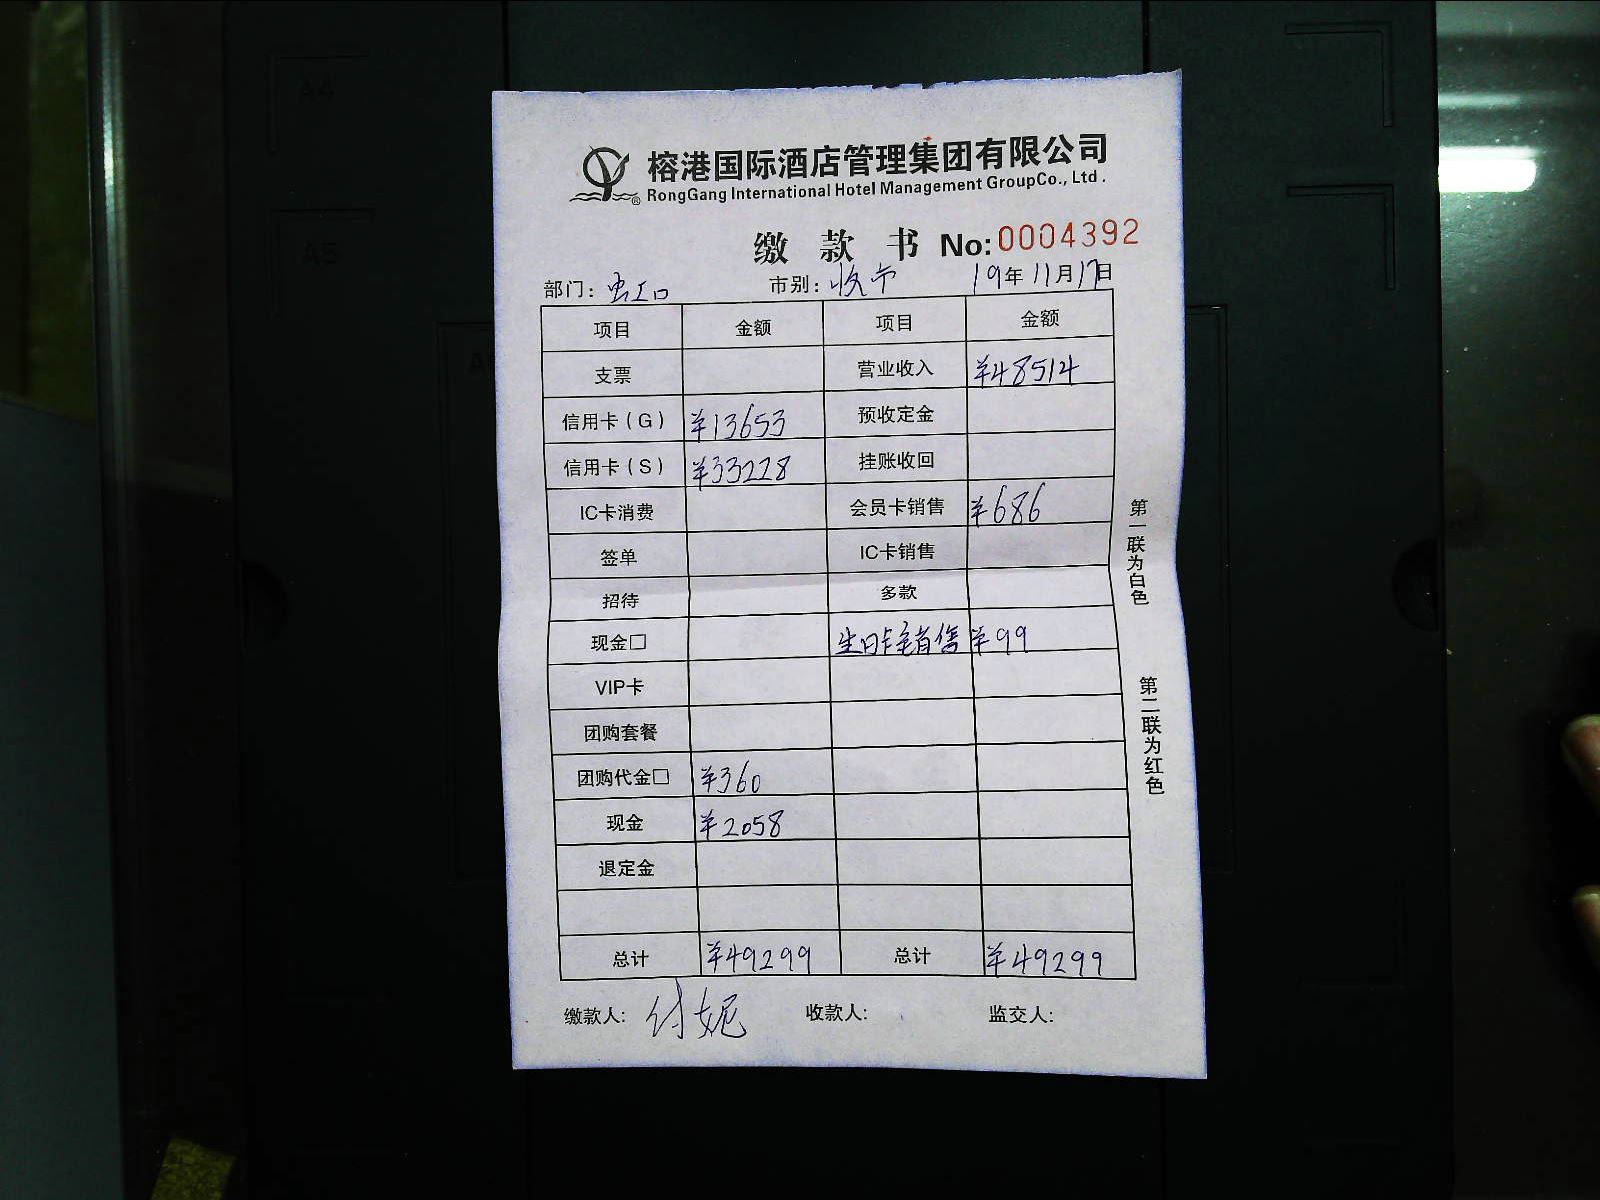 榕港国际酒店管理集团有限公司
RongGang International Hotel Management GroupCo., Ltd.
缴 款 书 No:0004392
部门: 虹口 市别: 收市 19年11月17日
项目 金额 项目 金额
支票 营业收入 ¥48514
信用卡(G) ¥13653 预收定金
信用卡(S) ¥33228 挂账收回
IC卡消费 会员卡销售 ¥686
签单 IC卡销售
招待 多款
现金□ 生日卡销售 ¥99
VIP卡
团购套餐
团购代金□ ¥360
现金 ¥2058
退定金
总计 ¥49299 总计 ¥49299
缴款人: 付妮 收款人: 监交人:
第一联为白色
第二联为红色
A4
A5